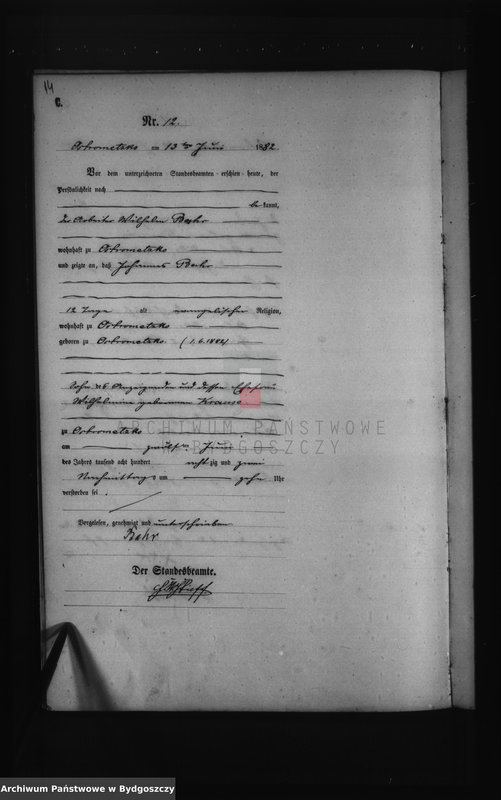 14
C.
Nr. 12.
Ostrometzko am 13ten Juni 1882
Vor dem unterzeichneten Standesbeamten erschien heute, der
Persönlichkeit nach
be kannt,
der Arbeiter Wilhelm Behr
wohnhaft zu Ostrometzko
und zeigte an, daß Johannes Behr
12 Tage alt evangelischer Religion,
wohnhaft zu Ostrometzko
geboren zu Ostrometzko. (1.6.1882)
Sohn des Anzeigenden und dessen Ehefrau
Wilhelmine geborenen Krause
ARCHIWUM PAŃSTWOWE
W BYDGOSZCZY
zu Ostrometzko
am Juni
des Jahres tausend acht hundert acht zig und zwei
Nachmittags um zehn Uhr
verstorben sei
Vorgelesen, genehmigt und unterschrieben
Behr
Der Standesbeamte.
Archiwum Państwowe w Bydgoszczy